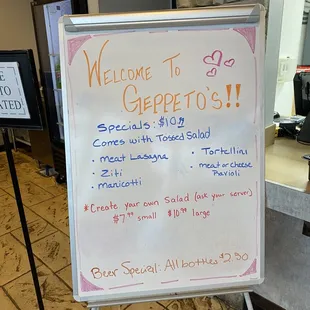 WELCOME TO
GEPPETO'S!!
Specials: $10.99
Comes with Tossed Salad
• Meat Lasagna
• Ziti
• Manicotti
• Tortellini
• Meat or Cheese
Ravioli
*Create your own Salad (ask your server)
$7.99 small $10.99 large
Beer Special: All bottles $2.50
TO
ATED